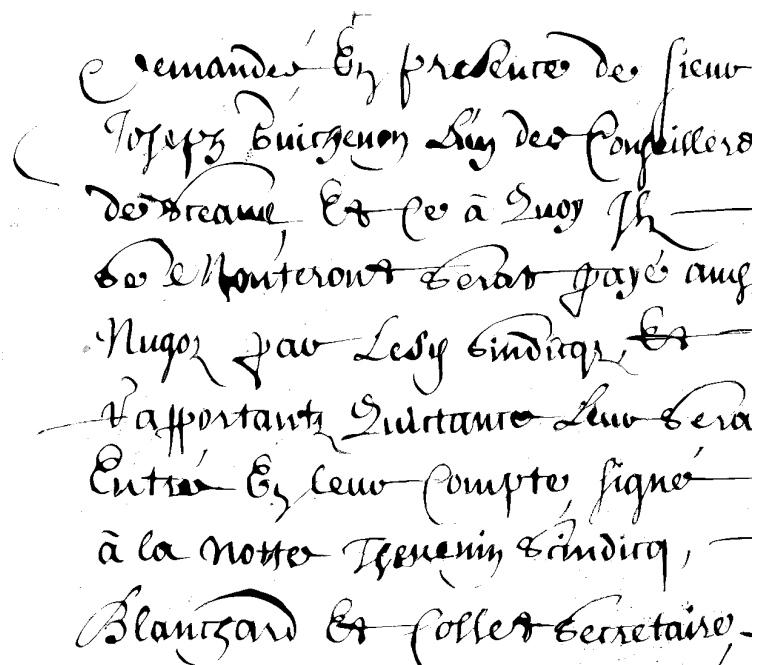 demandés En presence de sieur
Joseph Guichenon L'un des Conseillers
de sceaux, Et Ce à Quoy Ilz
se Monteront serat payé aux
Nugoz par Lesd sindicqz, Et
Rapportantz Quictance Leur sera
Entré En leur Compte, signé
à la notte Thevenin scindicq,
Blanchard Et Collet secretaire.